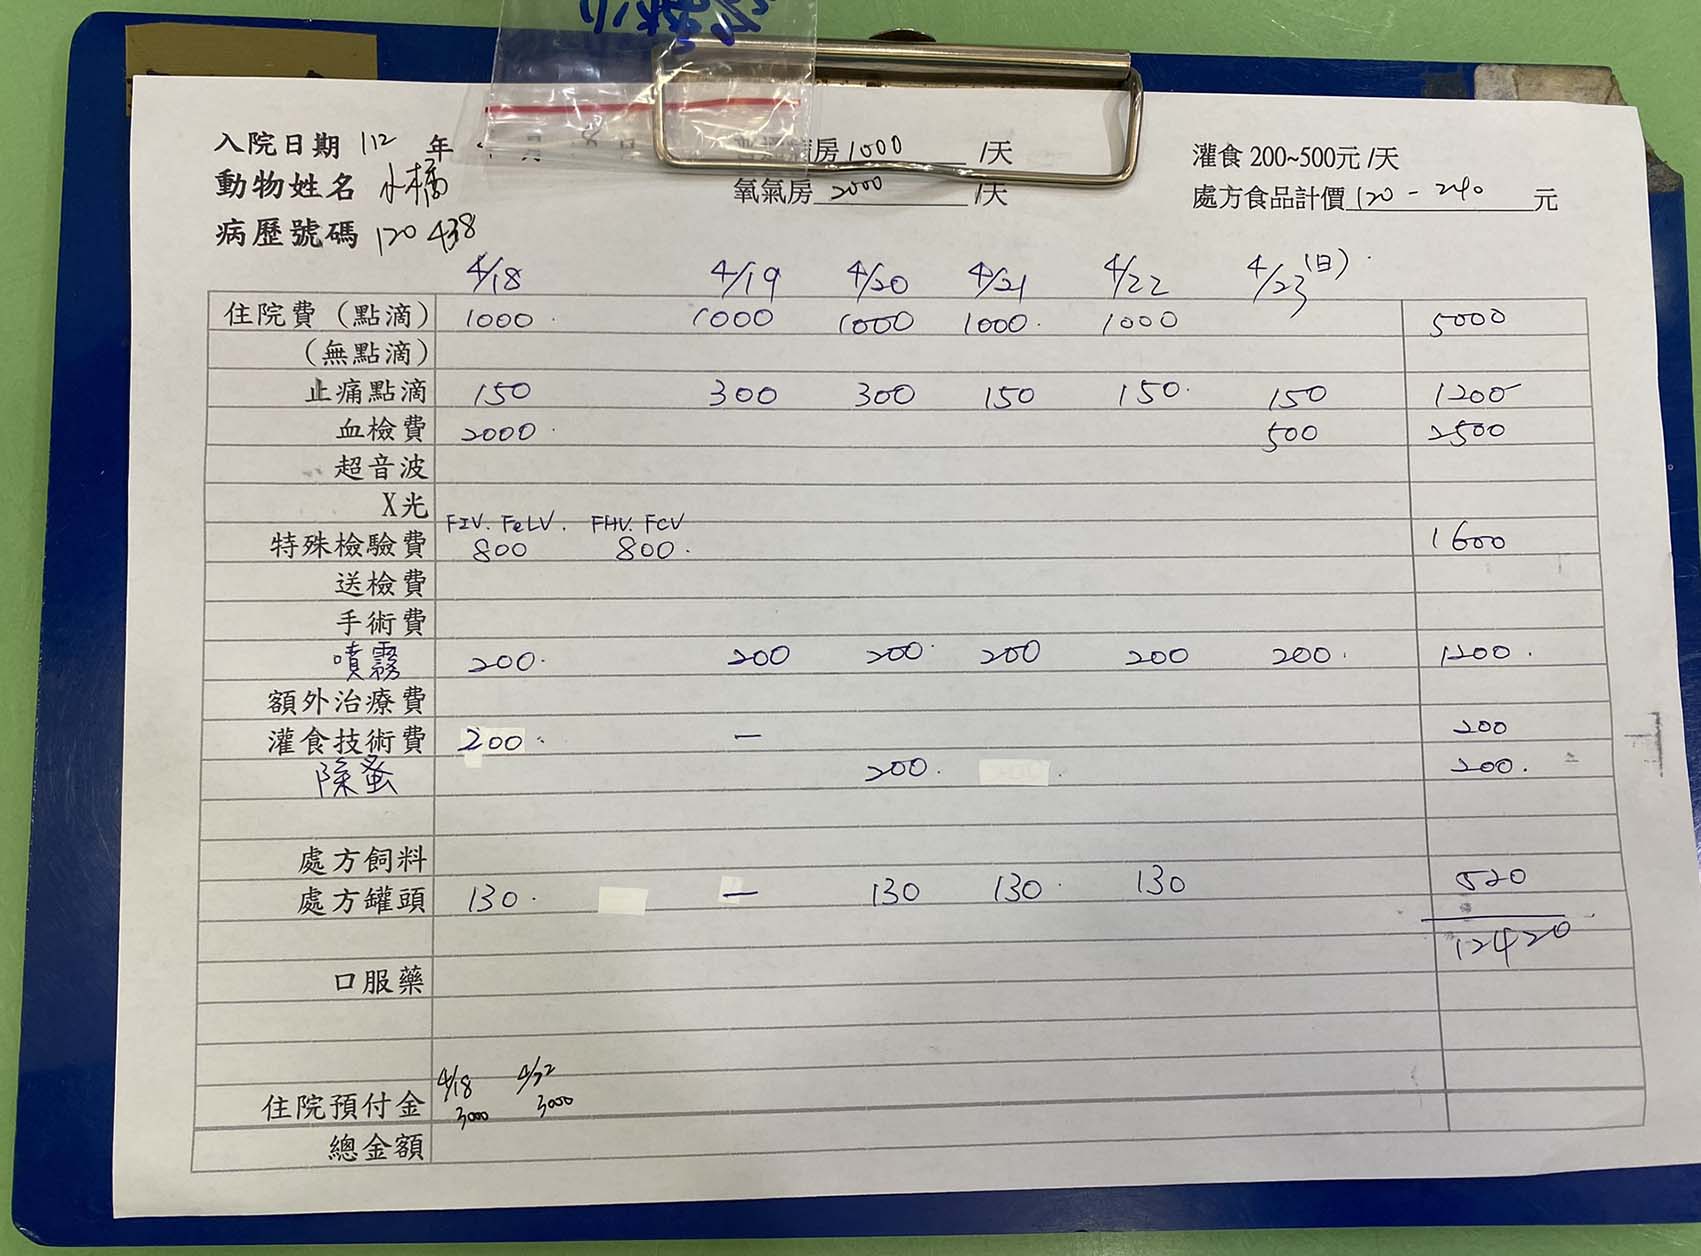 入院日期 112 年
房 1000 /天
灌食 200~500元 /天
動物姓名 小橘
氧氣房 2000 /天
處方食品計價 120 - 240 元
病歷號碼 120438
4/18 4/19 4/20 4/21 4/22 4/23 (日)
住院費（點滴） 1000 1000 1000 1000 1000 5000
（無點滴）
止痛點滴 150 300 300 150 150 150 1200
血檢費 2000 500 2500
超音波
X光
FIV. FeLV. FHV. FCV
特殊檢驗費 800 800 1600
送檢費
手術費
噴霧 200 200 200 200 200 200 1200
額外治療費
灌食技術費 200 — 200
除蚤 200 200
處方飼料
處方罐頭 130 — 130 130 130 520
12420
口服藥
4/18 4/22
住院預付金 3000 3000
總金額